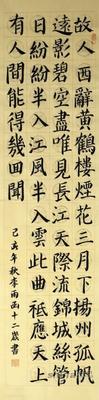 故人西辭黃鶴樓煙花三月下揚州孤帆
遠影碧空盡唯見長江天際流錦城絲管
日紛紛半入江風半入雲此曲祇應天上
有人間能得幾回聞
己亥年秋李雨函十二歲書